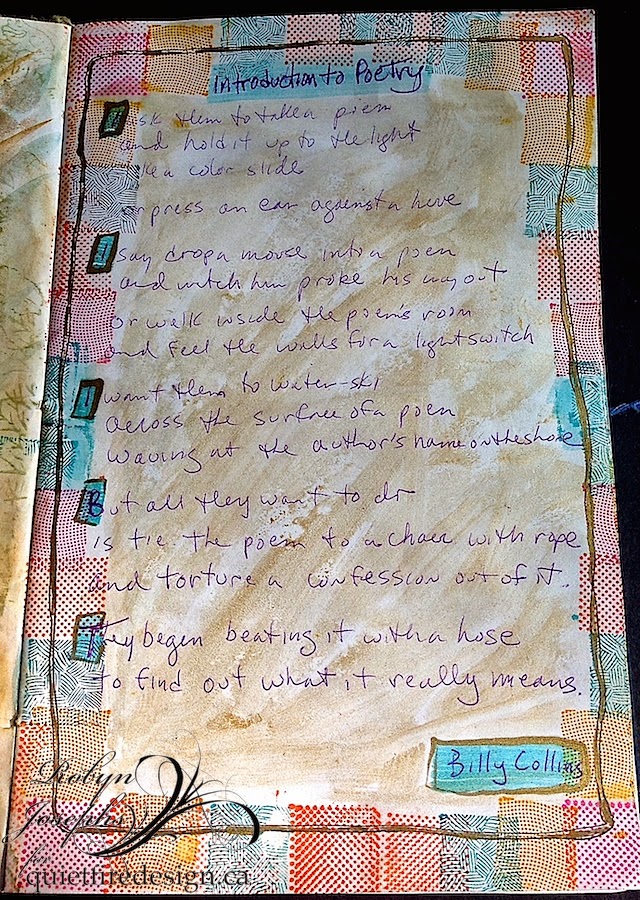 Introduction to Poetry
I ask them to take a poem
and hold it up to the light
like a color slide
or press an ear against a hive
I say drop a mouse into a poem
and watch him probe his way out
or walk inside the poem's room
and feel the walls for a lightswitch
I want them to water-ski
across the surface of a poem
waving at the author's name on the shore
But all they want to do
is tie the poem to a chair with rope
and torture a confession out of it.
They begin beating it with a hose
to find out what it really means.
Billy Collins
Robyn
Josephs
for
quietfiredesign.ca